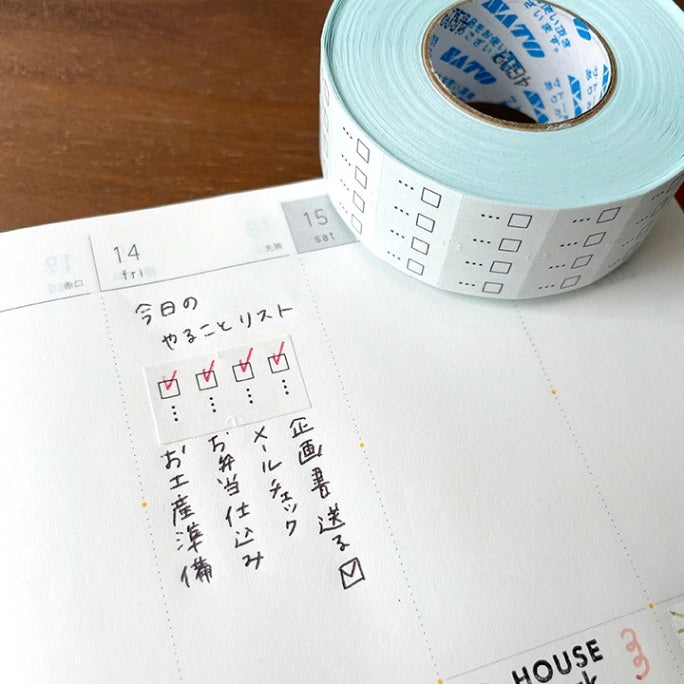 14
fri
先勝
15
sat
赤口
今日の
やることリスト
企画書送る
メールチェック
お弁当仕込み
お土産準備
HOUSE
SATO
SATO
SATO